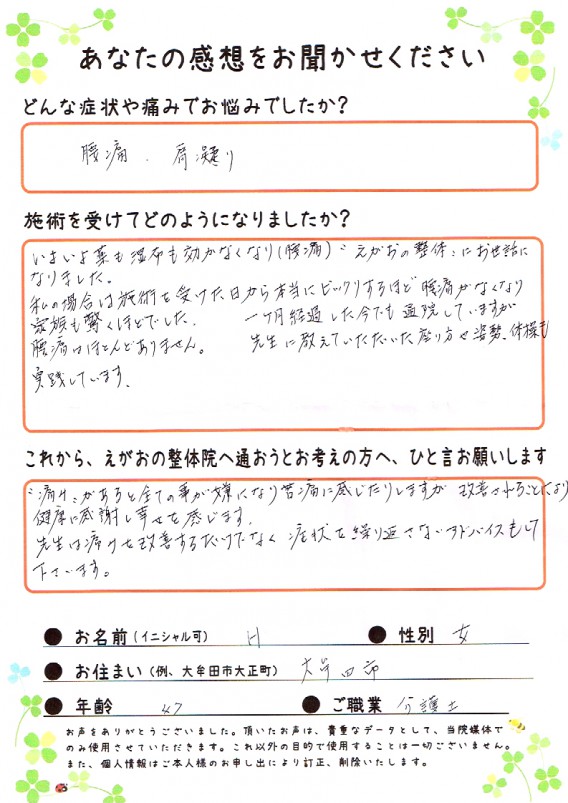 あなたの感想をお聞かせください
どんな症状や痛みでお悩みでしたか？
腰痛 . 肩凝り
施術を受けてどのようになりましたか？
いよいよ薬も湿布も効かなくなり(腰痛)〝えがおの整体〟にお世話に
なりました。
私の場合は施術を受けた日から本当にビックリするほど腰痛がなくなり
家族も驚くほどでした. 一ヶ月経過した今でも通院していますが
腰痛はほとんどありません。 先生に教えていただいた座り方や姿勢、体操も
実践しています.
これから、えがおの整体院へ通おうとお考えの方へ、ひと言お願いします
〝痛み〟があると全ての事が嫌になり苦痛に感じたりしますが 改善されることにより
健康に感謝し幸せを感じます.
先生は痛みを改善するだけでなく 症状を繰り返さないアドバイスもして
下さいます。
● お名前(イニシャル可) H ● 性別 女
● お住まい(例、大牟田市大正町) 大牟田市
● 年齢 47 ● ご職業 介護士
お声をありがとうございました。頂いたお声は、貴重なデータとして、当院媒体で
のみ使用させていただきます。これ以外の目的で使用することは一切ございません。
また、個人情報はご本人様のお申し出により訂正、削除いたします。